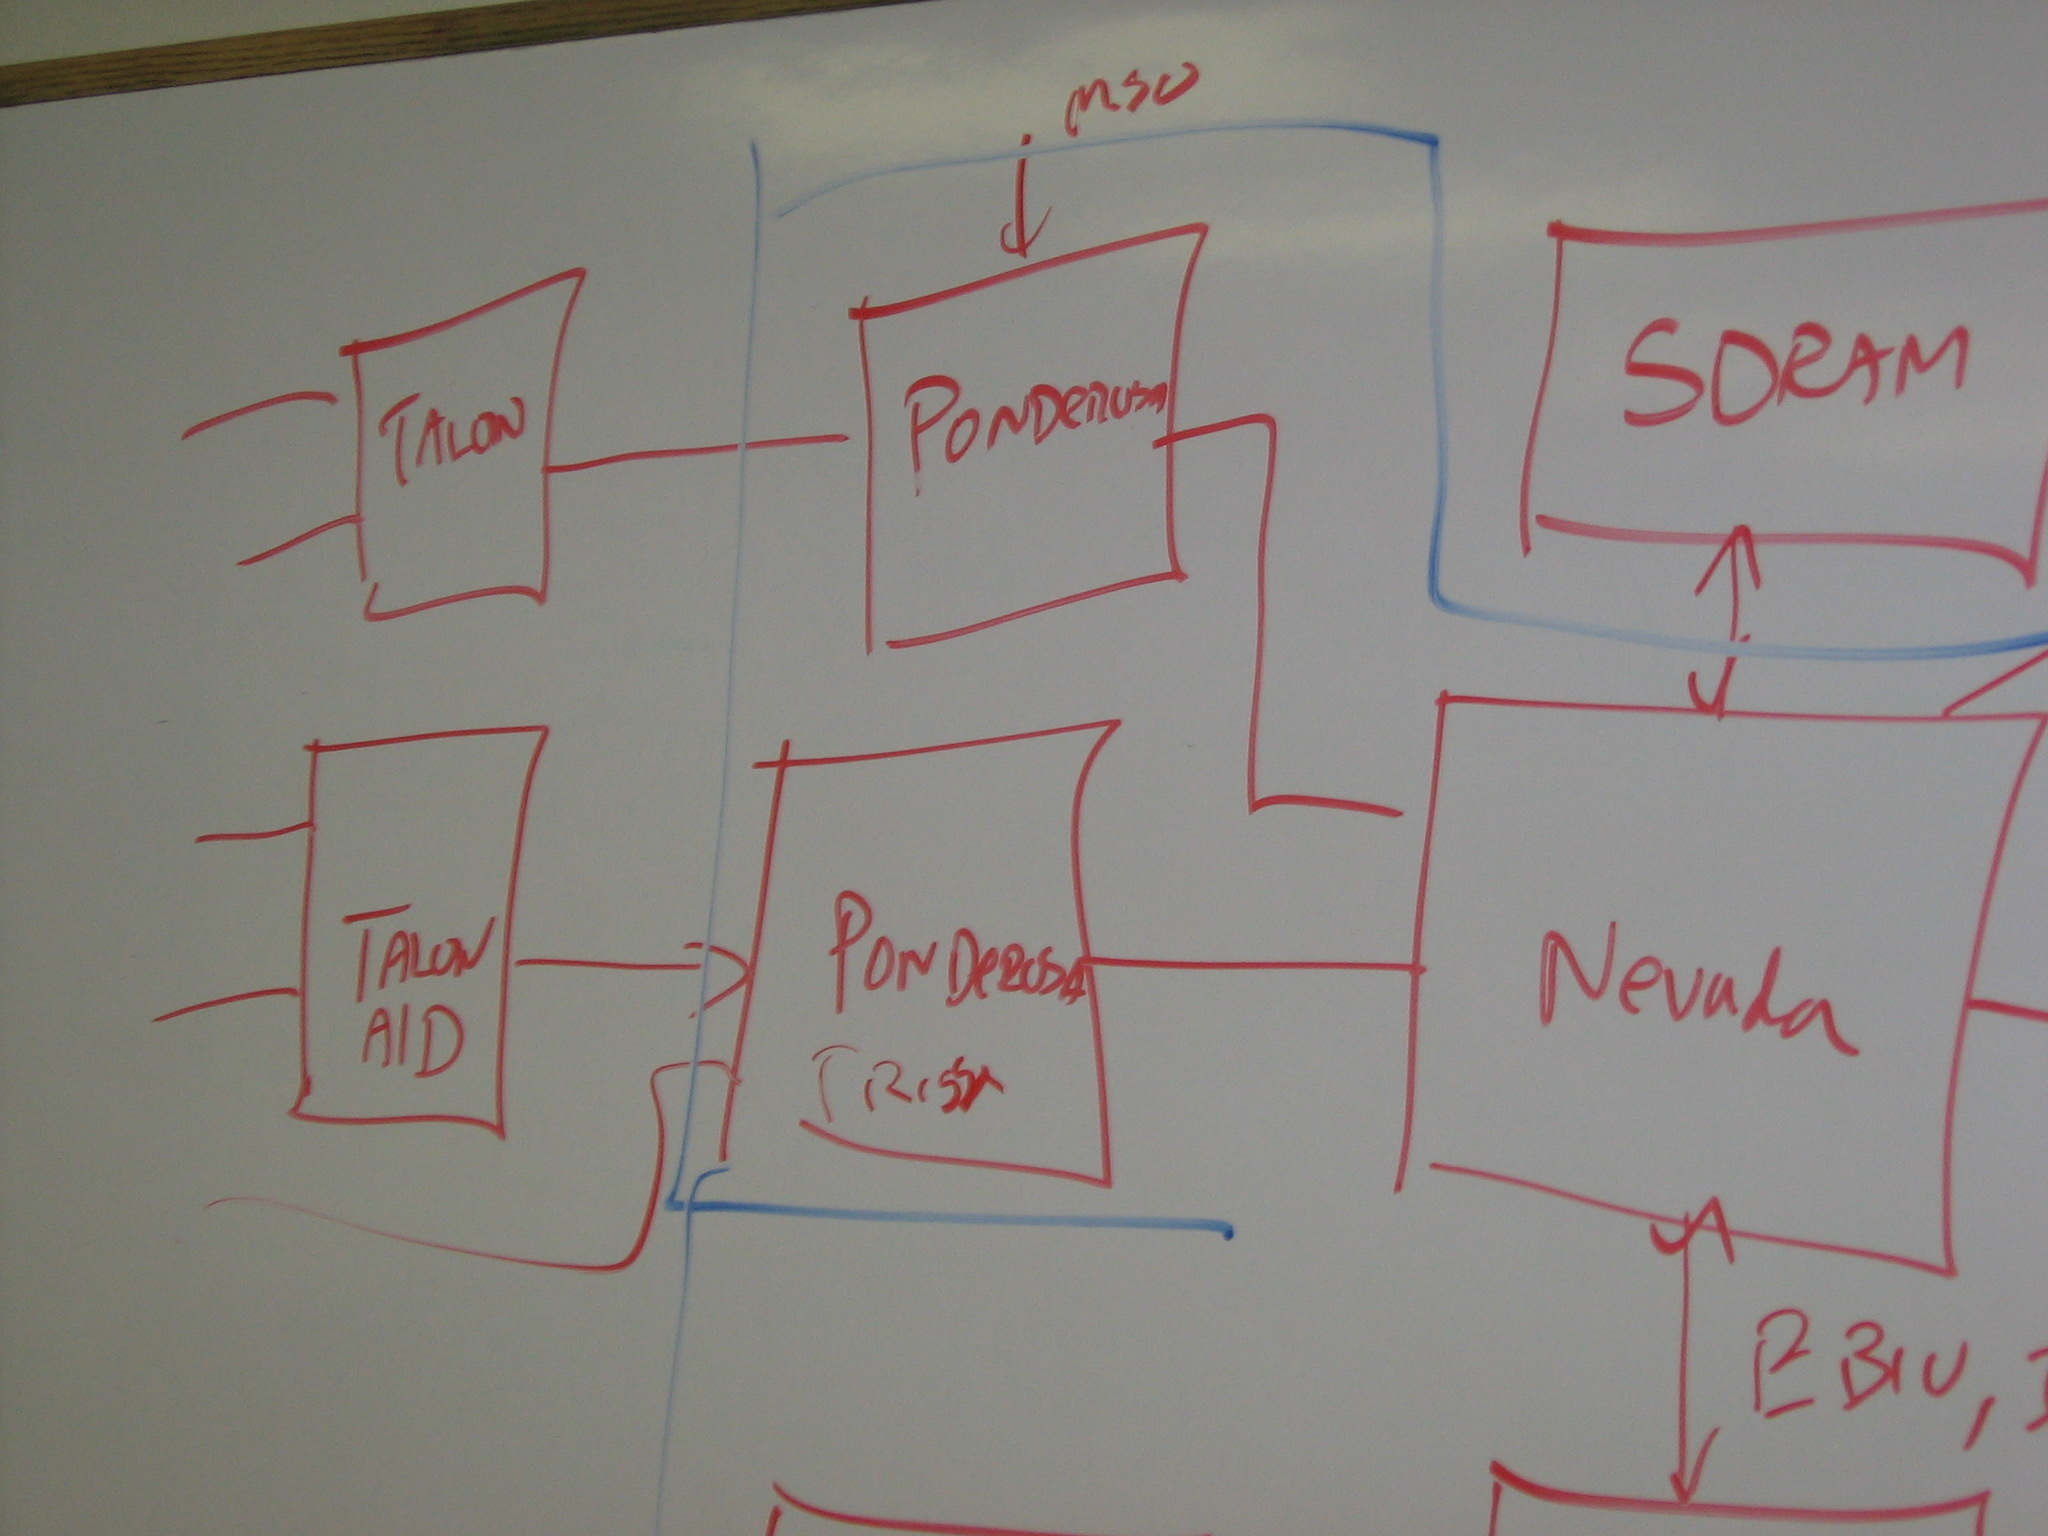 MSO
TALON
PONDEROSA
SDRAM
TALON
A/D
PONDEROSA
Nevada
EBIU,